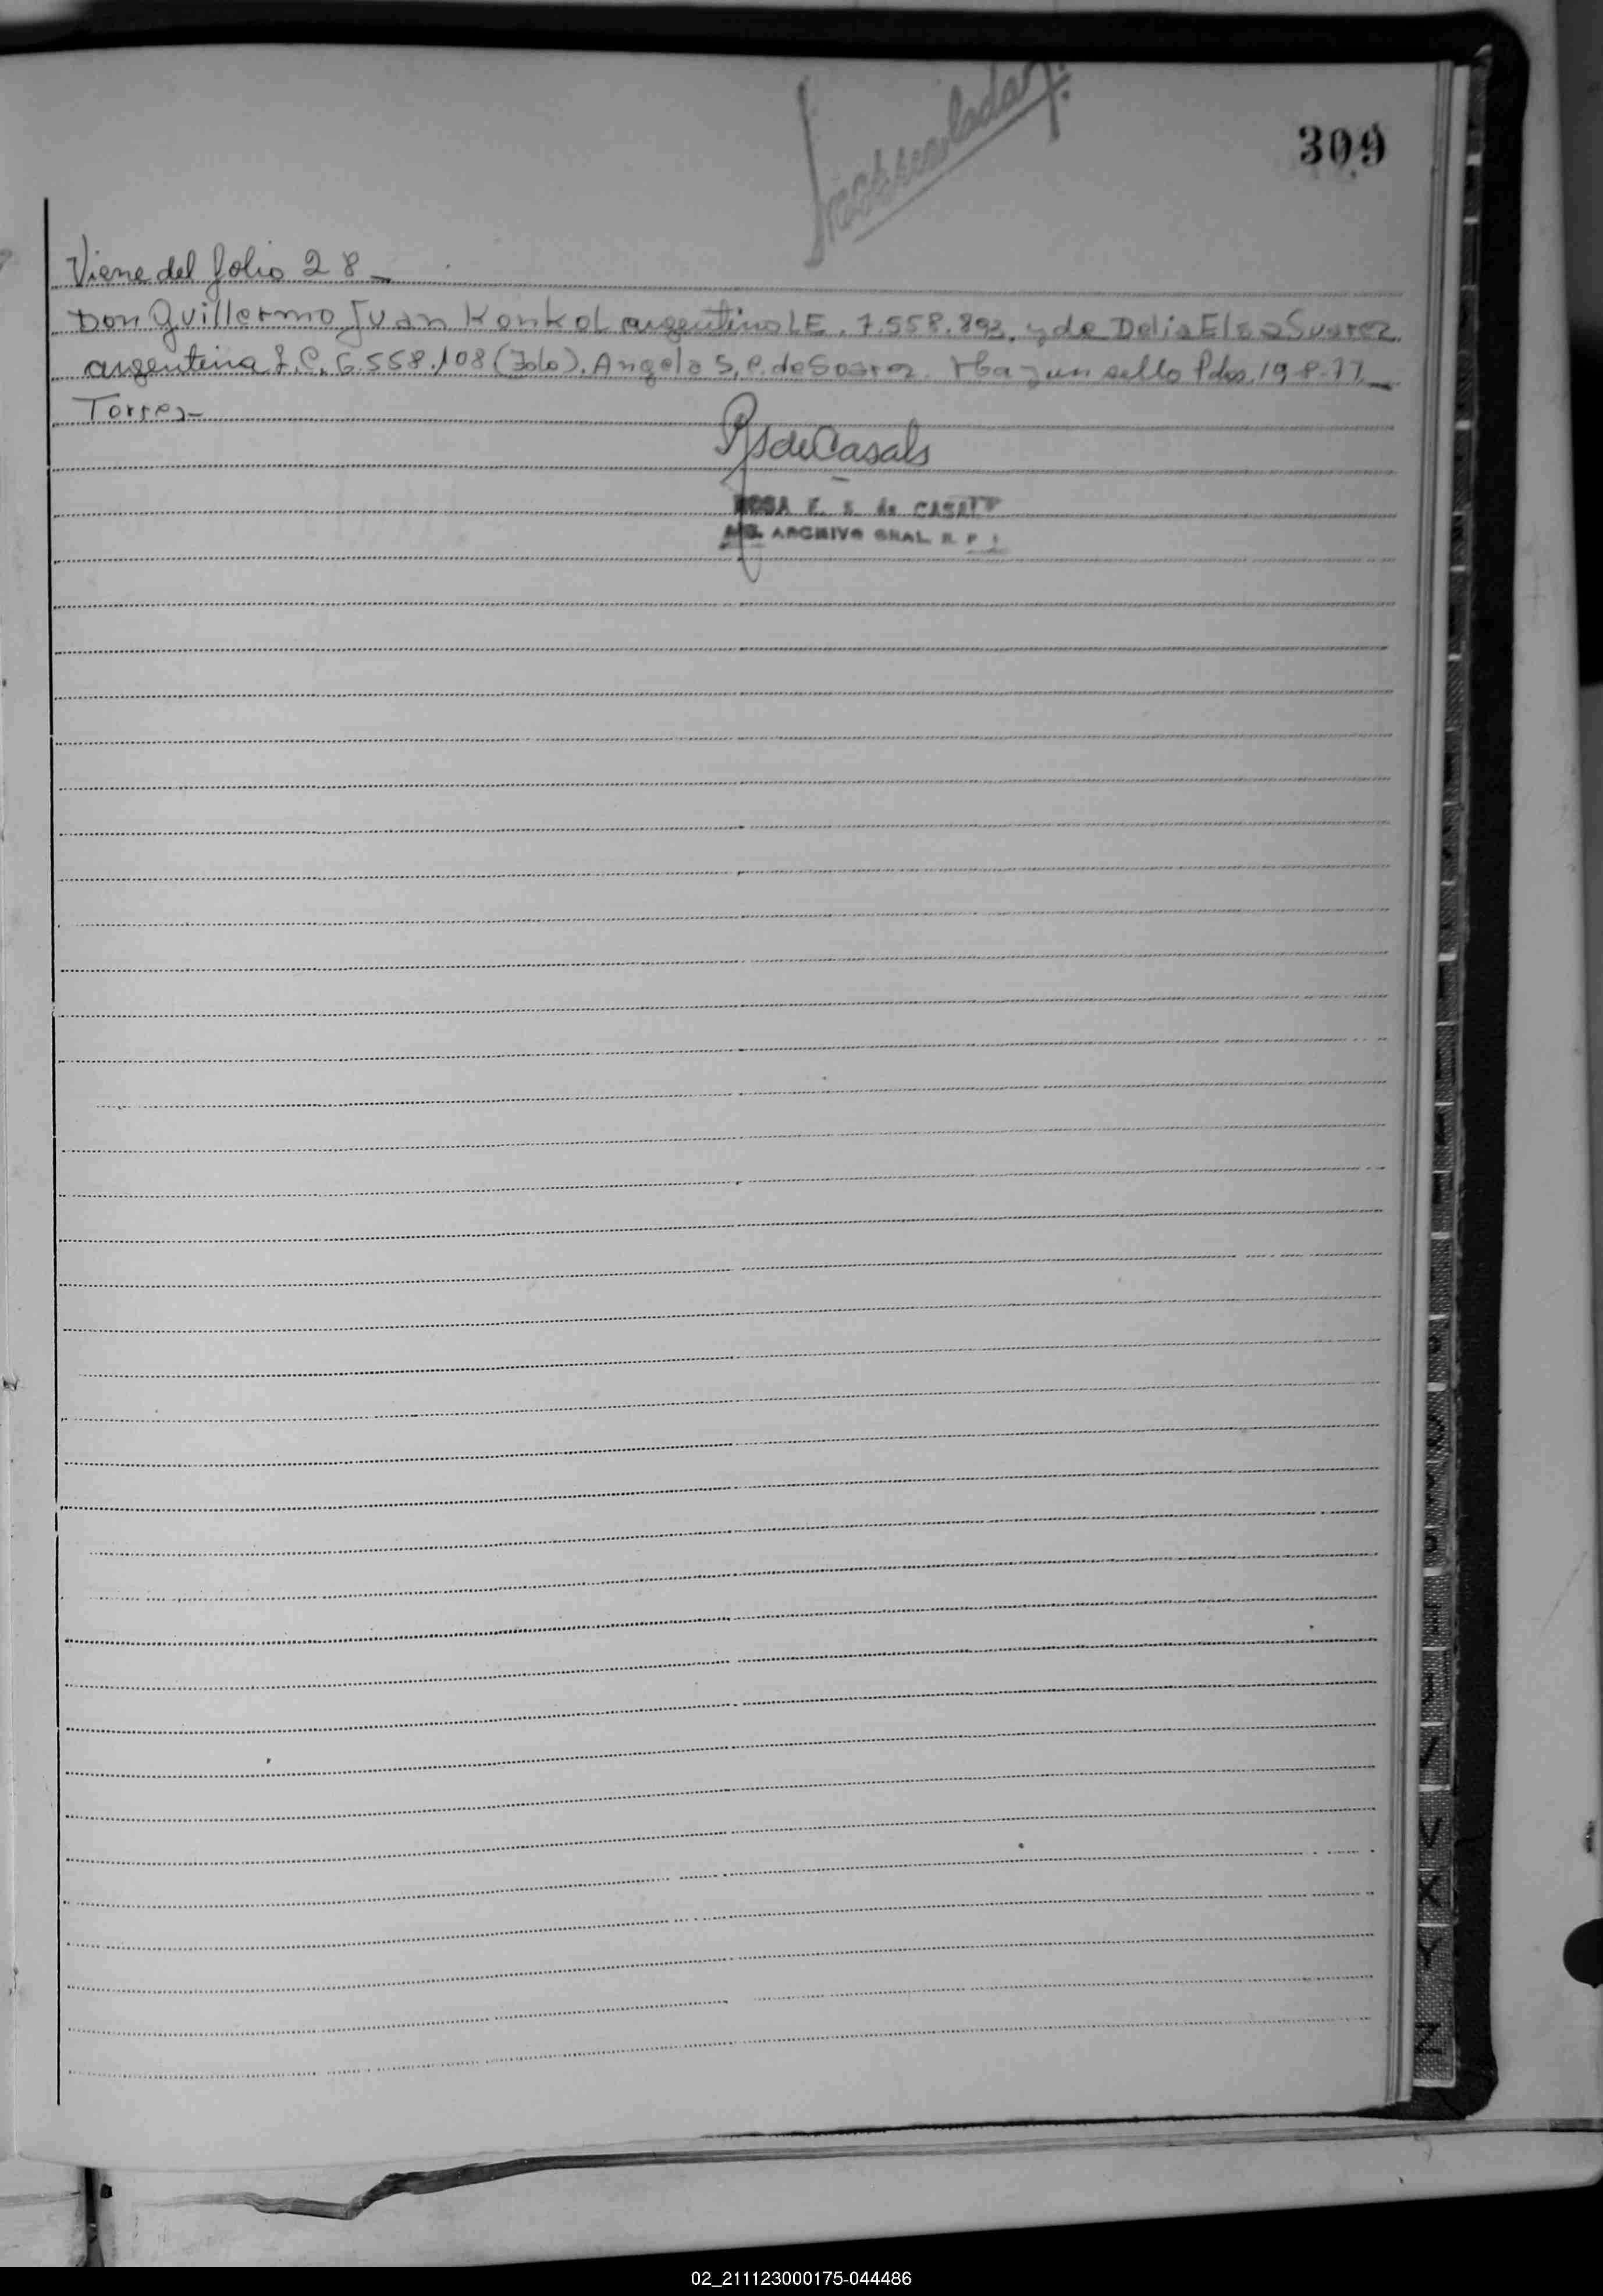 309
Viene del folio 28_
Don Guillermo Juan Konkol argentino L E. 7.558.893. y de Delia Elsa Suarez.
argentina L.C. 6.558.108 (Fdo). Angela S. P. de Suarez. Hay un sello Pdos. 19-8-77_
Torres_
RsdeCasals
ROSA E. S. de CASALS
ARCHIVO GRAL. R. P. I.
U
V
X
Y
Z
02_211123000175-044486